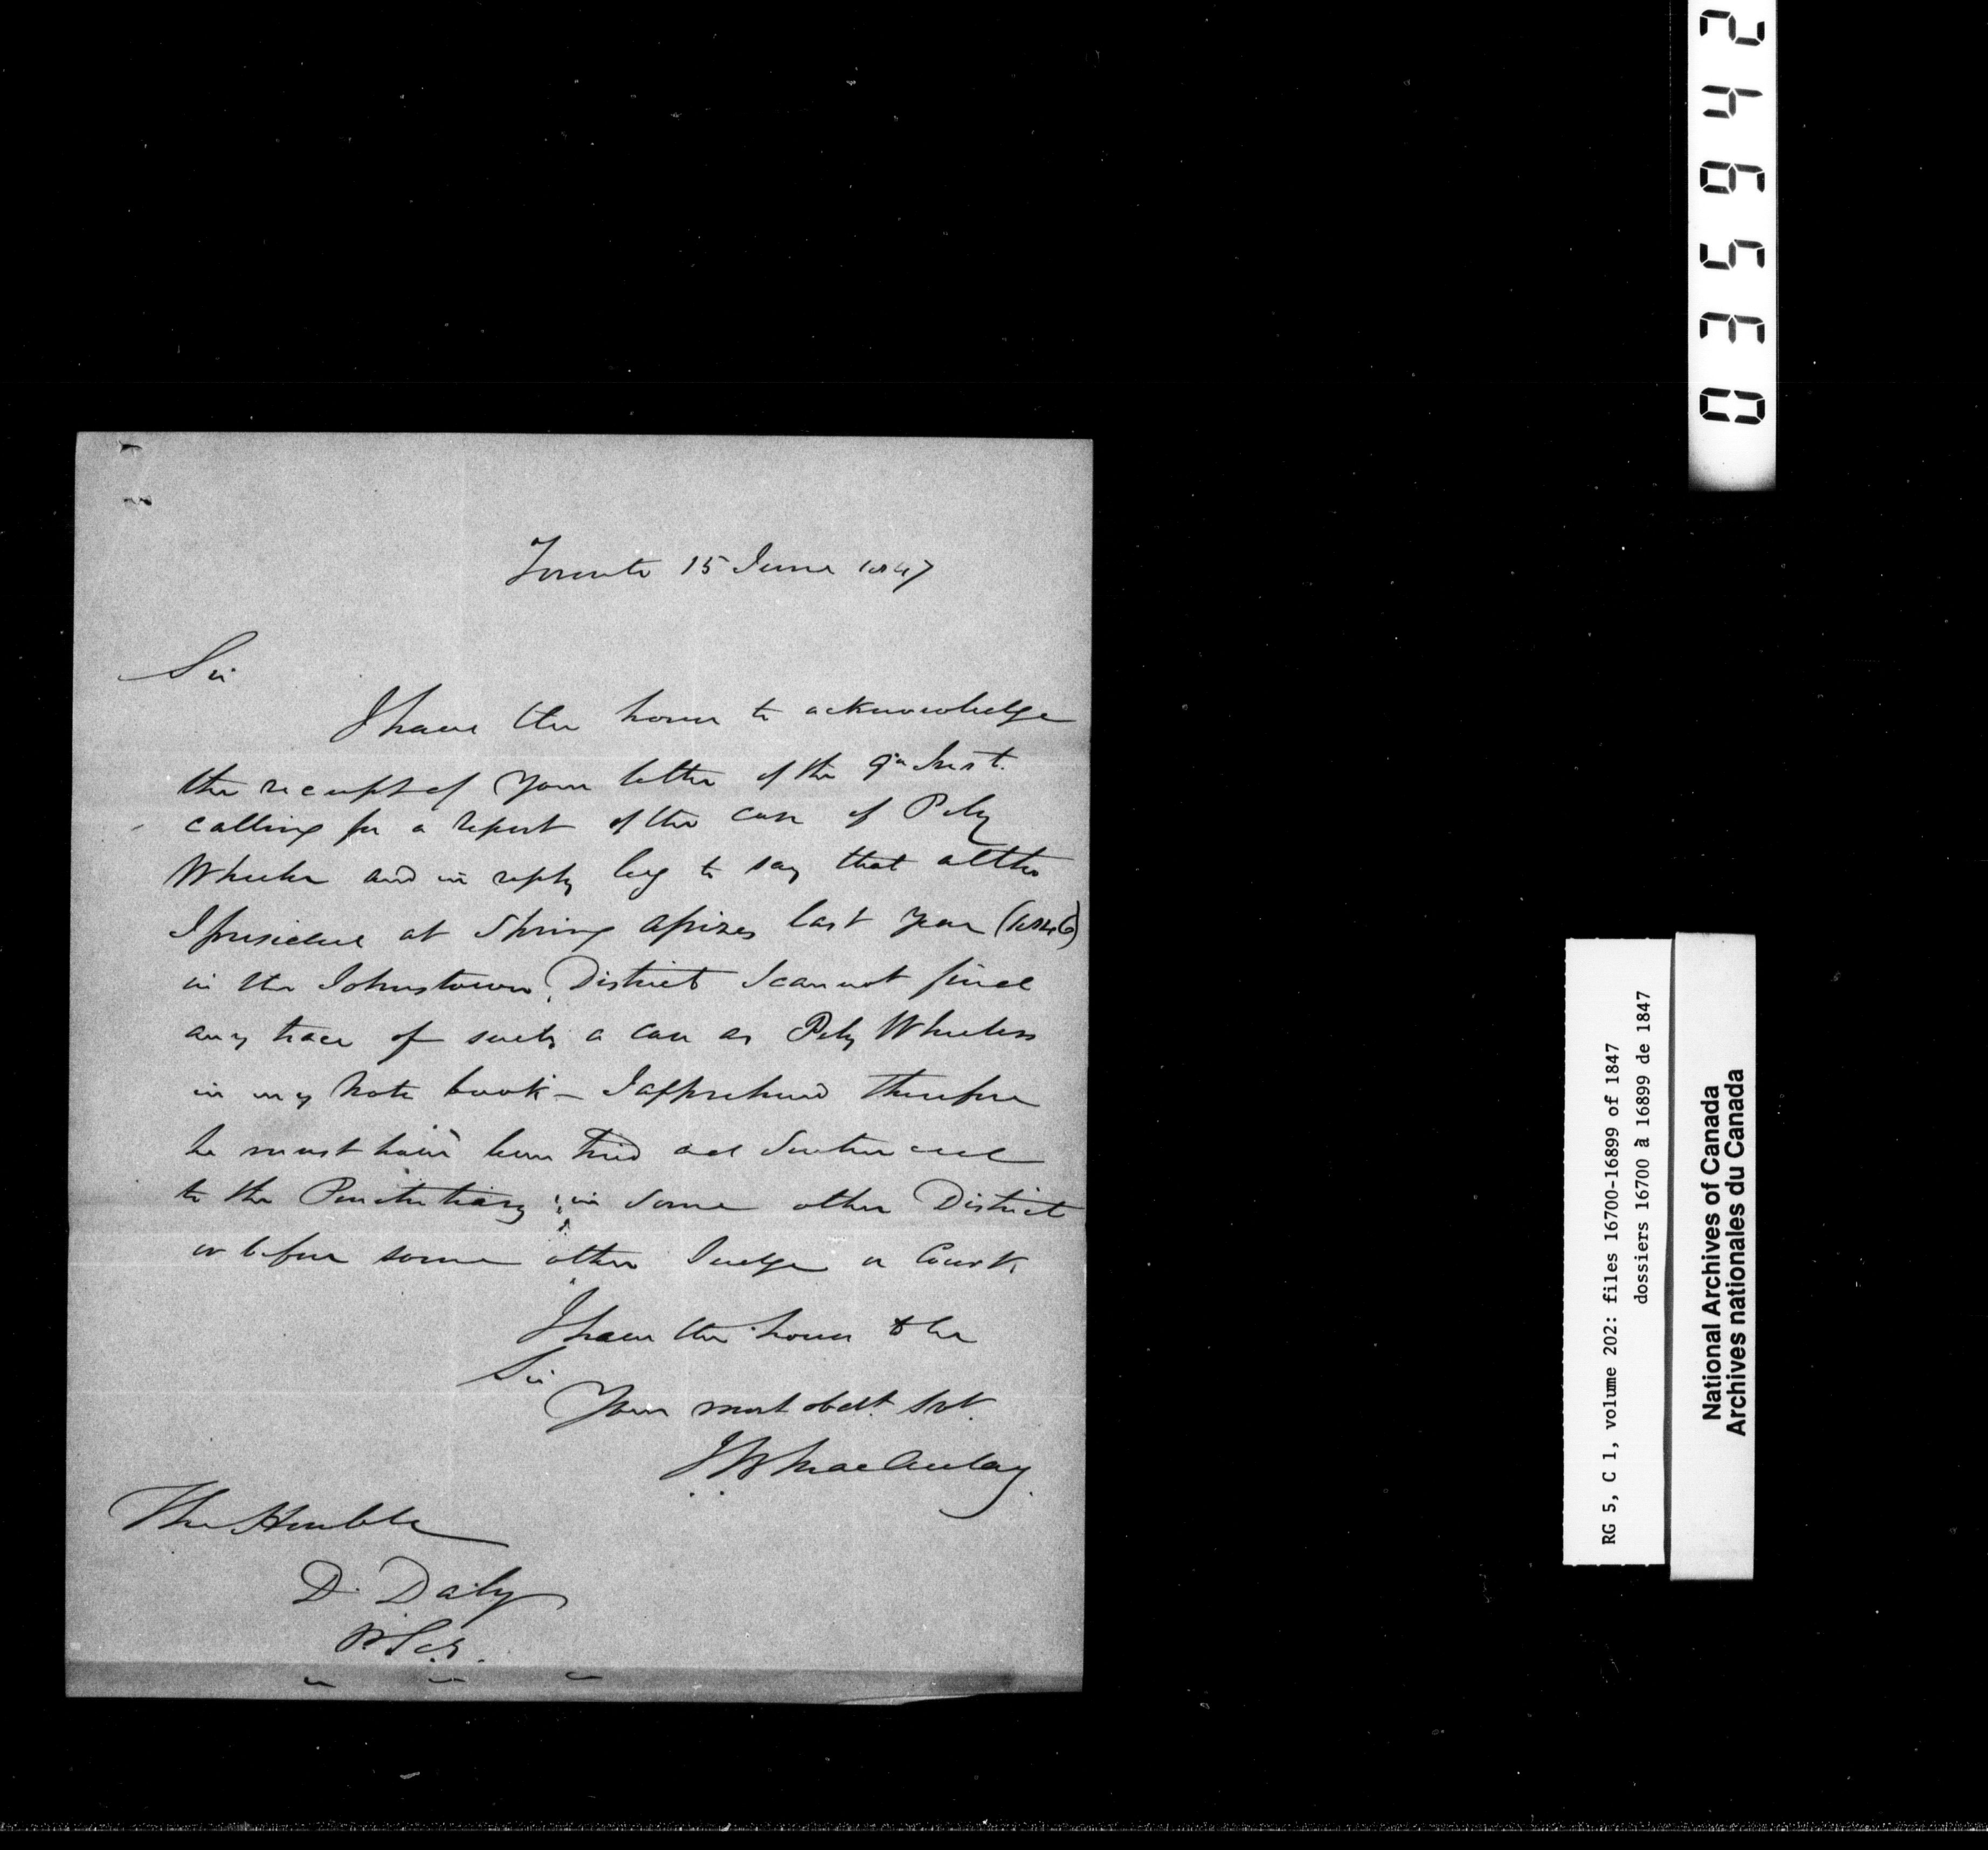 Toronto 15 June 1847
Sir
I have the honor to acknowledge
the receipt of your letter of the 9th Inst.
calling for a report of the case of Pely
Wheeler and in reply beg to say that altho
I presided at Spring Assizes last year (1846)
in the Johnstown District I cannot find
any trace of such a case as Pely Wheelers
in my note book – I apprehend therefore
he must have been tried and sentenced
to the Penitentiary in some other District
or before some other Judge or Court.
I have the honor to be
Sir
Your most obdt. Svt.
J B Macaulay.
The Honble
D. Daly
024653
RG 5, C 1, volume 202: files 16700-16899 of 1847
dossiers 16700 à 16899 de 1847
National Archives of Canada
Archives nationales du Canada